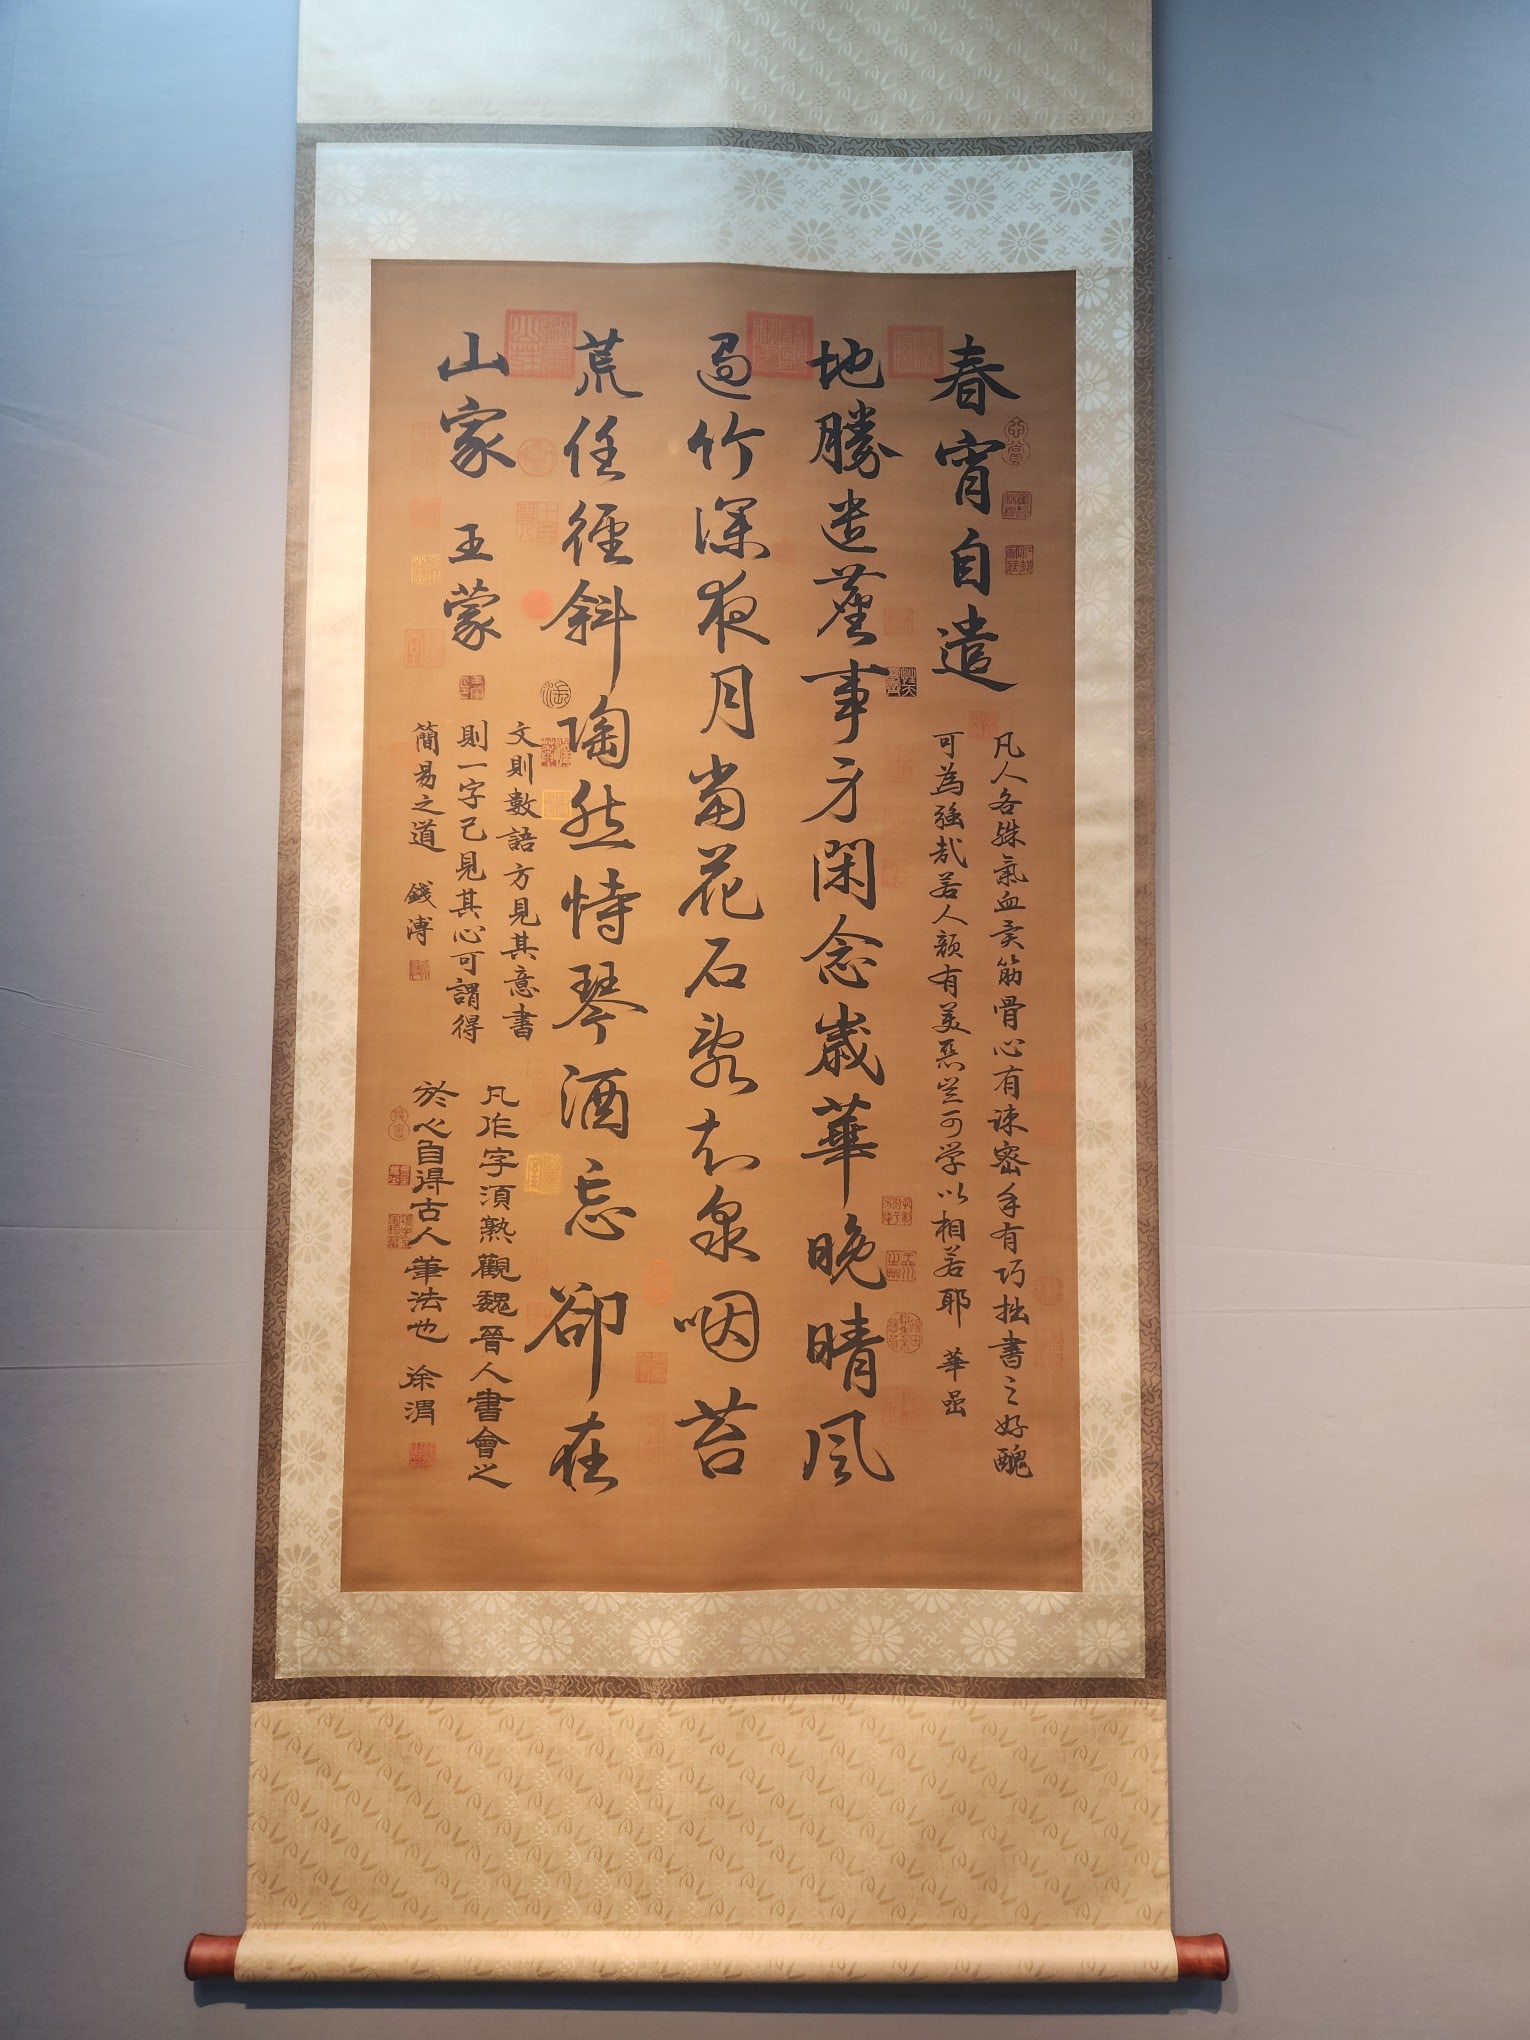 春宵自遣
地勝遣塵事身閑念歲華晚晴風
過竹深夜月當花石亂知泉咽苔
荒任徑斜陶然恃琴酒忘卻在
山家 王蒙
凡人各殊氣血異筋骨心有疎密手有巧拙書之好醜
可為強哉若人顏有美惡豈可学以相若耶 華嵒
文則數語方見其意書
則一字已見其心可謂得
簡易之道 錢溥
凡作字須熟觀魏晉人書會之
於心自得古人筆法也 徐渭